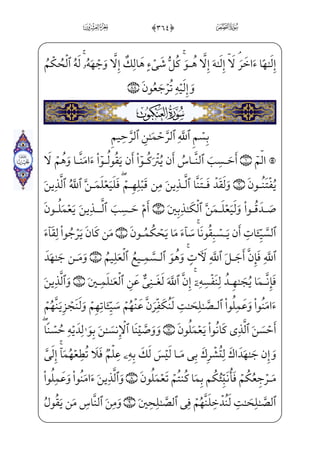 ﴿٣٦٤﴾
إِلَٰهًا ءَاخَرَ ۘ لَآ إِلَٰهَ إِلَّا هُوَ ۚ كُلُّ شَىْءٍ هَالِكٌ إِلَّا وَجْهَهُۥ ۚ لَهُ ٱلْحُكْمُ
وَإِلَيْهِ تُرْجَعُونَ ٨٨
سُورَةُ الْعَنْكَبُوتِ
بِسْمِ ٱللَّهِ ٱلرَّحْمَٰنِ ٱلرَّحِيمِ
۞ الٓمٓ ١ أَحَسِبَ ٱلنَّاسُ أَن يُتْرَكُوٓا۟ أَن يَقُولُوٓا۟ ءَامَنَّا وَهُمْ لَا
يُفْتَنُونَ ٢ وَلَقَدْ فَتَنَّا ٱلَّذِينَ مِن قَبْلِهِمْ ۖ فَلَيَعْلَمَنَّ ٱللَّهُ ٱلَّذِينَ
صَدَقُوا۟ وَلَيَعْلَمَنَّ ٱلْكَٰذِبِينَ ٣ أَمْ حَسِبَ ٱلَّذِينَ يَعْمَلُونَ
ٱلسَّيِّـَٔاتِ أَن يَسْبِقُونَا ۚ سَآءَ مَا يَحْكُمُونَ ٤ مَن كَانَ يَرْجُوا۟ لِقَآءَ
ٱللَّهِ فَإِنَّ أَجَلَ ٱللَّهِ لَـَٔاتٍ ۚ وَهُوَ ٱلسَّمِيعُ ٱلْعَلِيمُ ٥ وَمَن جَٰهَدَ
فَإِنَّمَا يُجَٰهِدُ لِنَفْسِهِۦٓ ۚ إِنَّ ٱللَّهَ لَغَنِىٌّ عَنِ ٱلْعَٰلَمِينَ ٦ وَٱلَّذِينَ
ءَامَنُوا۟ وَعَمِلُوا۟ ٱلصَّٰلِحَٰتِ لَنُكَفِّرَنَّ عَنْهُمْ سَيِّـَٔاتِهِمْ وَلَنَجْزِيَنَّهُمْ
أَحْسَنَ ٱلَّذِى كَانُوا۟ يَعْمَلُونَ ٧ وَوَصَّيْنَا ٱلْإِنسَٰنَ بِوَٰلِدَيْهِ حُسْنًا ۖ
وَإِن جَٰهَدَاكَ لِتُشْرِكَ بِى مَا لَيْسَ لَكَ بِهِۦ عِلْمٌ فَلَا تُطِعْهُمَآ ۚ إِلَىَّ
مَرْجِعُكُمْ فَأُنَبِّئُكُم بِمَا كُنتُمْ تَعْمَلُونَ ٨ وَٱلَّذِينَ ءَامَنُوا۟ وَعَمِلُوا۟
ٱلصَّٰلِحَٰتِ لَنُدْخِلَنَّهُمْ فِى ٱلصَّٰلِحِينَ ٩ وَمِنَ ٱلنَّاسِ مَن يَقُولُ